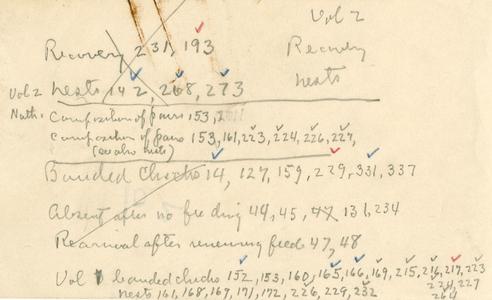 Vol 2
Recovery 231, 193
Recovery
Vol 2 nests 142, 268, 273
nests
Composition of pairs 153, 2
Composition of pairs 153, 161, 223, 224, 226, 227,
(see also nests)
Banded Chicks 14, 127, 159, 229, 331, 337
Absent after no feeding 44, 45, 47, 131, 234
Rearrival after renewing feed 47, 48
Vol 1 banded chicks 152, 153, 160, 165, 166, 169, 215, 216, 217, 223
224, 227
nests 161, 168, 167, 171, 172, 226, 229, 232
264